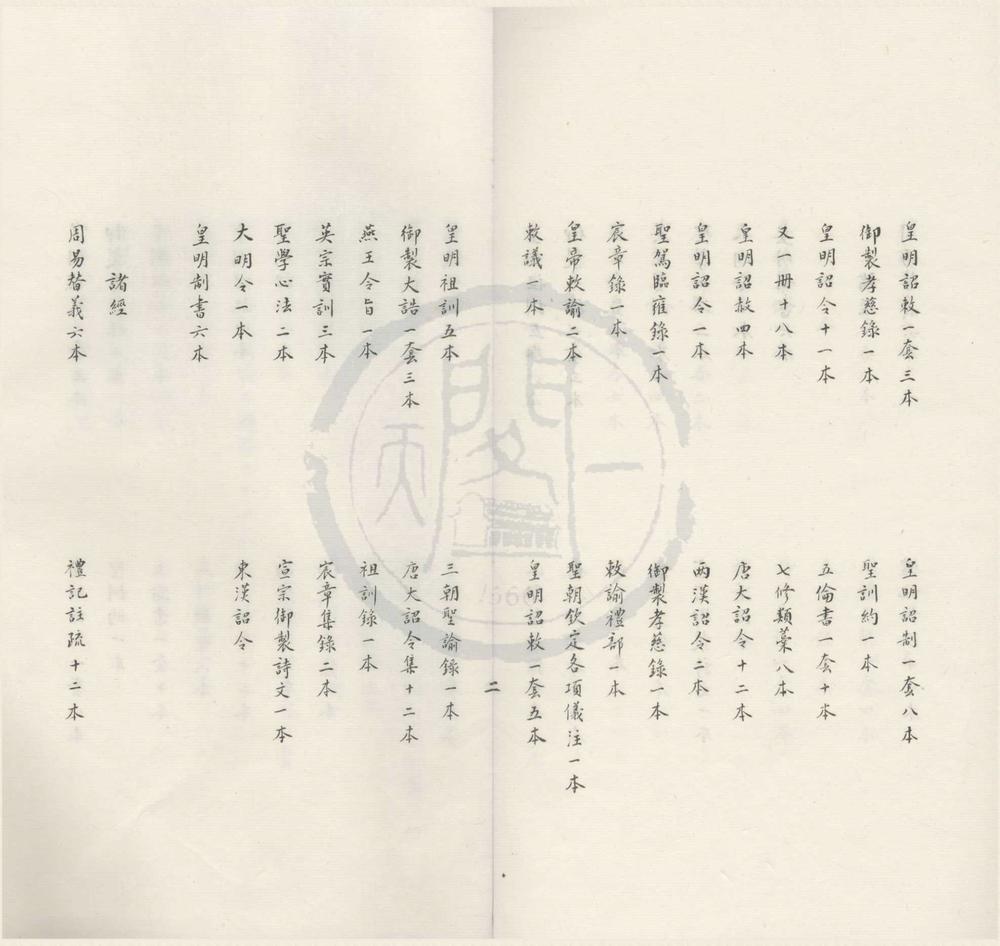 皇明詔敕一套三本
皇明詔制一套八本
御製孝慈錄一本
聖訓約一本
皇明詔令十一本
五倫書一套十本
又一冊十八本
七修類藁八本
皇明詔赦四本
唐大詔令十二本
皇明詔令一本
兩漢詔令二本
聖駕臨雍錄一本
御製孝慈錄一本
宸章錄一本
敕諭禮部一本
皇帝敕諭二本
聖朝欽定各項儀注一本
敕議一本
皇明詔敕一套五本
二
皇明祖訓五本
三朝聖諭錄一本
御製大誥一套三本
唐大詔令集十二本
燕王令旨一本
祖訓錄一本
英宗實訓三本
宸章集錄二本
聖學心法二本
宣宗御製詩文一本
大明令一本
東漢詔令
皇明制書六本
諸經
周易替義六本
禮記註疏十二本
天一閣
1566